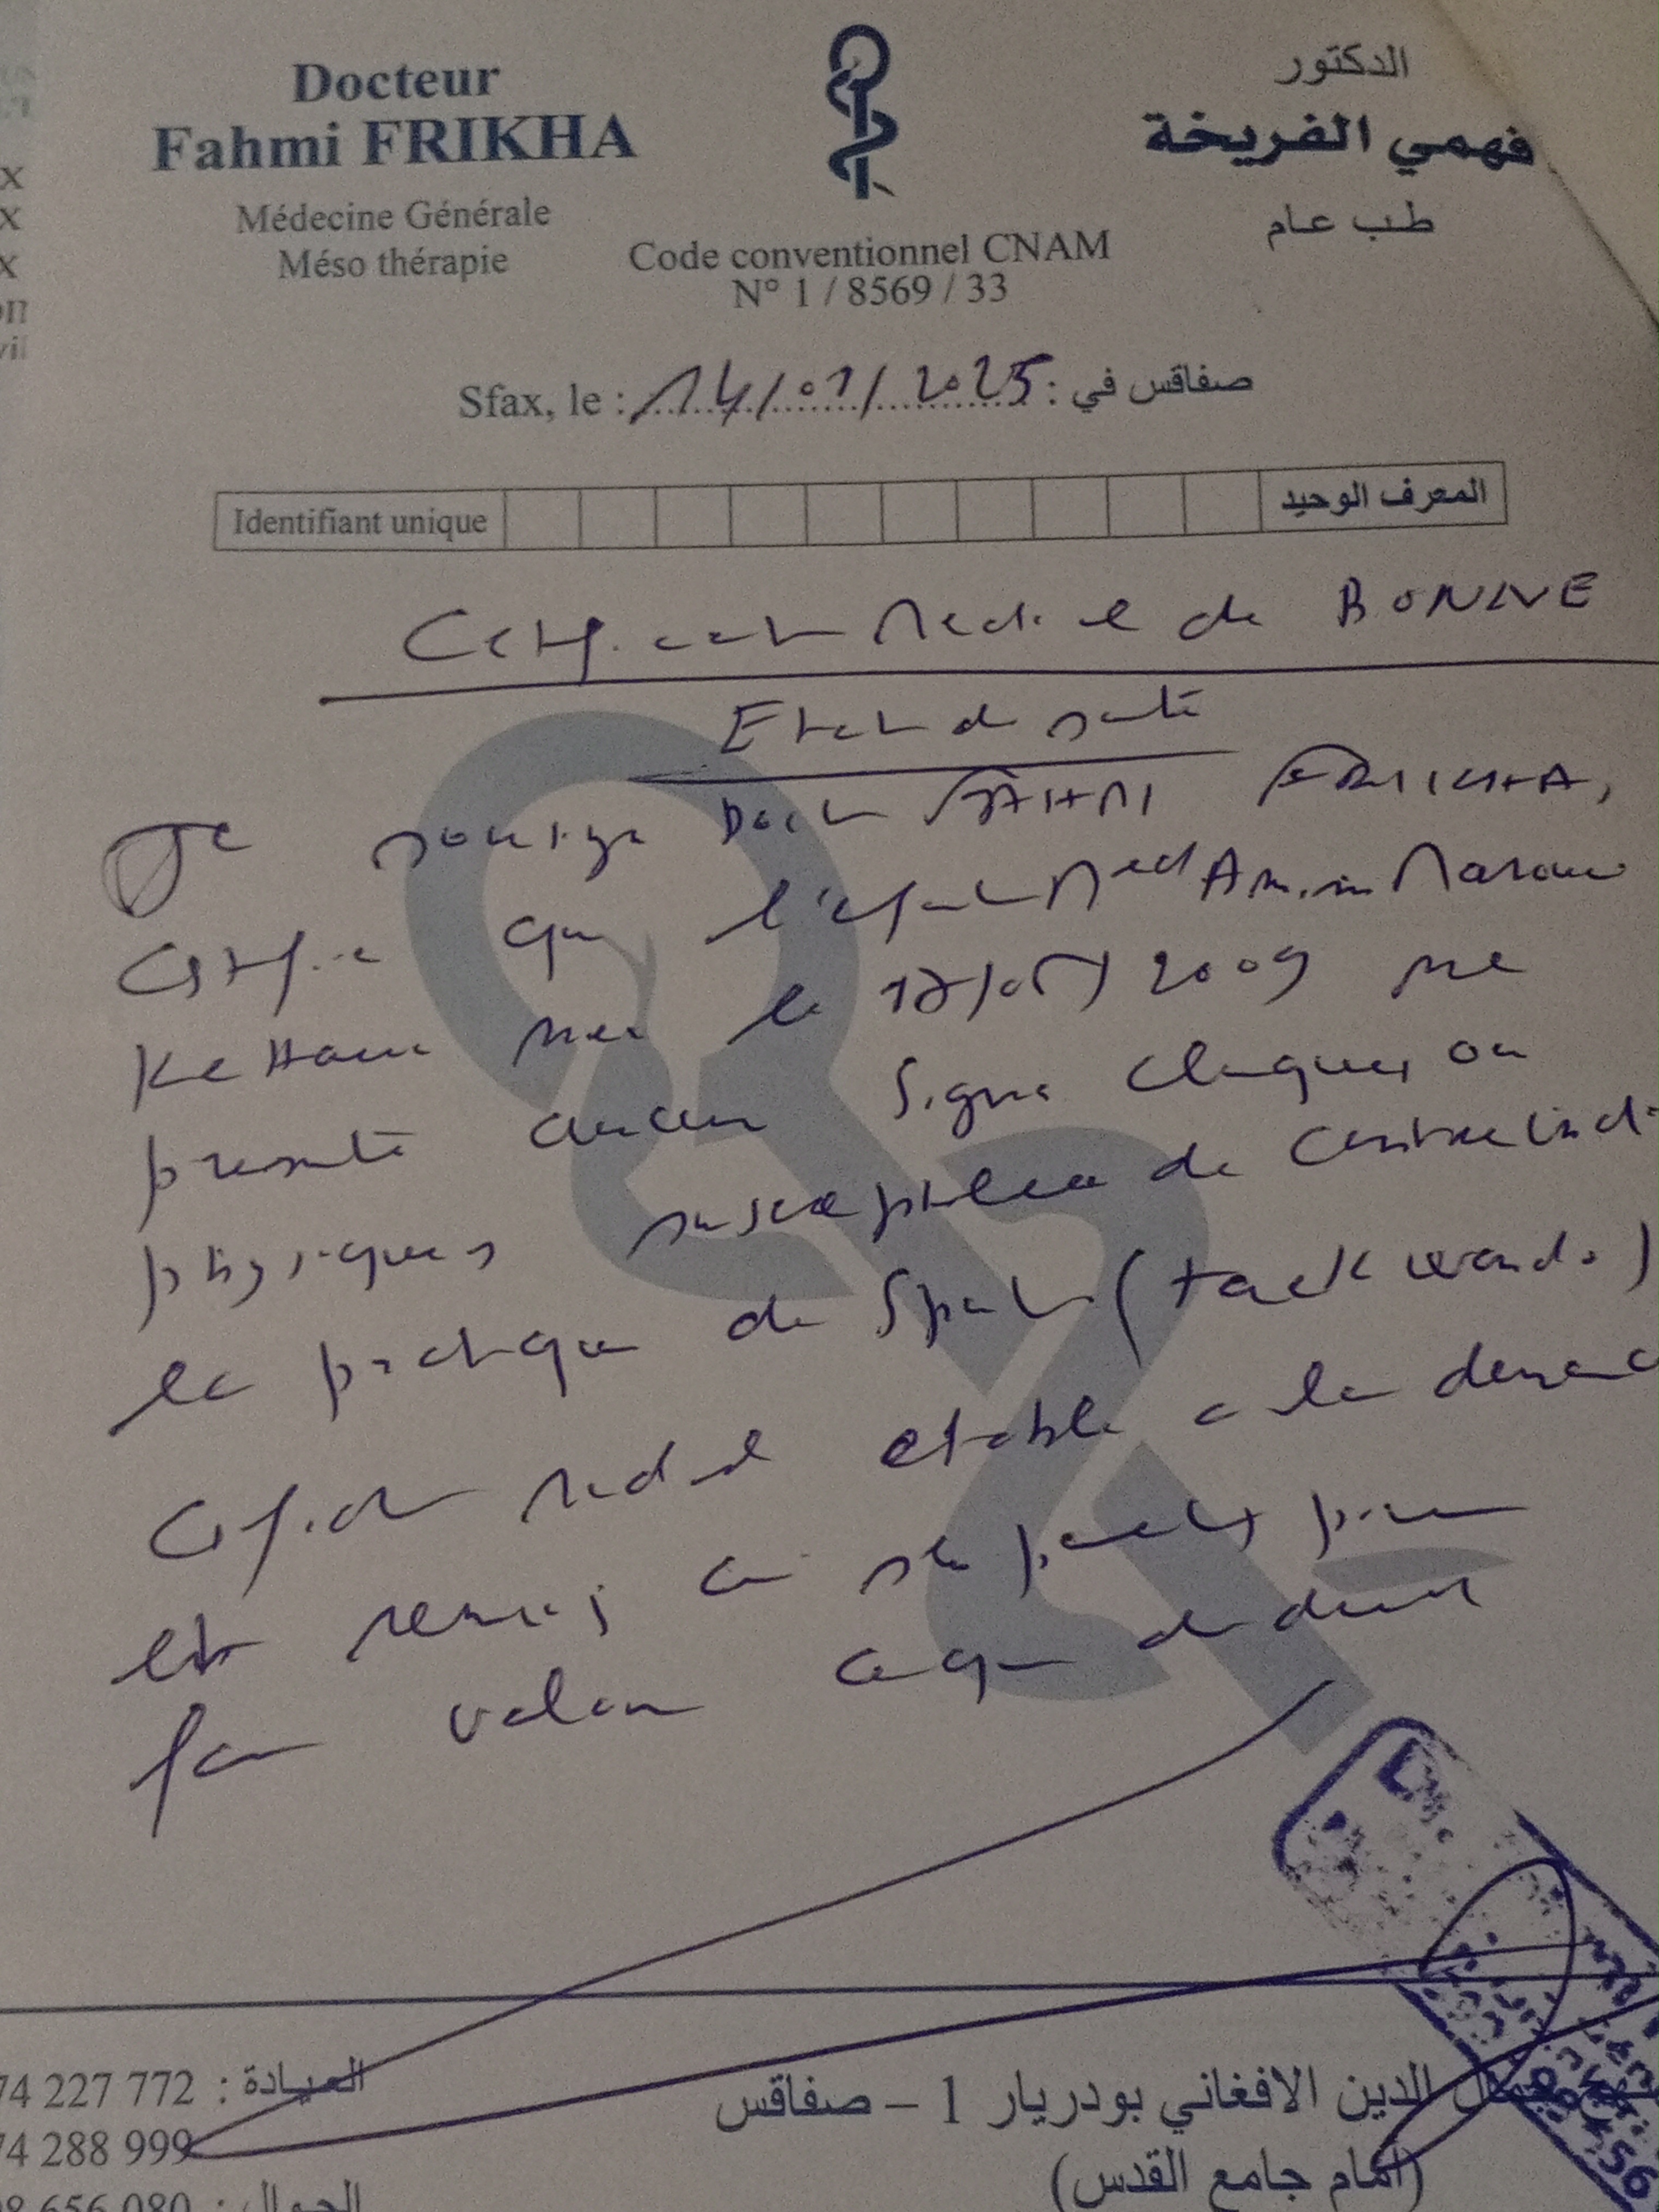 Docteur
Fahmi FRIKHA
Médecine Générale
Méso thérapie
الدكتور
فهمي الفريخة
طب عام
Code conventionnel CNAM
N° 1 / 8569 / 33
Sfax, le : 14/01/2025 صفاقس في :
Identifiant unique المعرف الوحيد
Certificat Medical de BONNE
Etat de santé
Je soussigné Docteur FAHMI FRIKHA,
Certifie que l'enfant Med Amine
né le 17/05/2009 ne
présente aucun signe cliniques ou
physiques susceptible de contre indi
la pratique de Sport (taekwondo)
Certificat medical etablie a la deman
et remis a ses parents pour
faire valoir ce que de droit
74 227 772 : العيادة
74 288 999
98 656 080 : الجوال
ال الدين الافغاني بودريار 1 – صفاقس
(أمام جامع القدس)